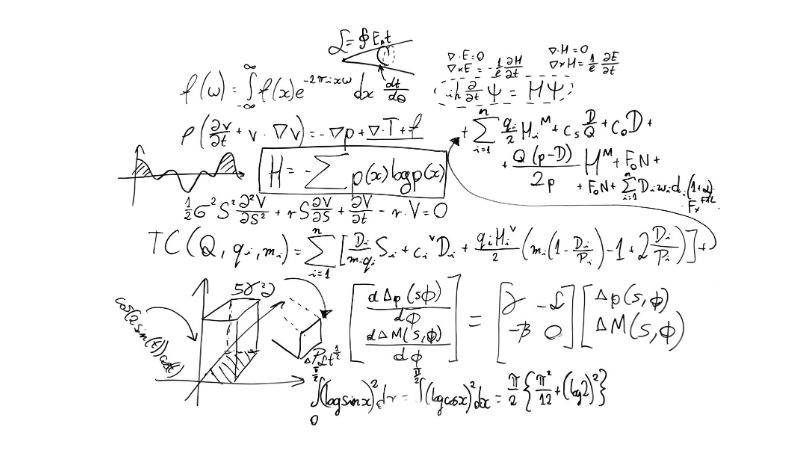 ∇·E=0 ∇·H=0
∇×E=-1/c ∂H/∂t ∇×H=1/c ∂E/∂t
f(ω)=∫_{-∞}^{∞} f(x)e^{-2πixω} dx dt/dθ
iħ ∂/∂t Ψ = HΨ
ρ(∂v/∂t + v·∇v) = -∇p + ∇·T + f
+∑_{i=1}^{n} q_i/2 H_i^M + C_s D/Q + C_o D +
H = -∑ p(x) log p(x)
+ Q(p-D)/2p H^M + F_oN +
+ F_oN + ∑_{i=1}^{n} D_i w_i d_i
1/2 σ²S² ∂²V/∂S² + rS ∂V/∂S + ∂V/∂t - r·V=0
TC(Q, q_i, m_i) = ∑_{i=1}^{n} [D_i/(m_i q_i) S_i + c_i^v D_i + q_i H_i^v/2 (m_i(1-D_i/P_i)-1+2 D_i/P_i)]+
[dΔp(s,ϕ)/dϕ ; dΔM(s,ϕ)/dϕ] = [γ -α ; -β 0] [Δp(s,ϕ) ; ΔM(s,ϕ)]
∫_{0}^{π/2} (log sin x)² dx = ∫^{π/2} (log cos x)² dx = π/2 {π²/12 + (log2)²}